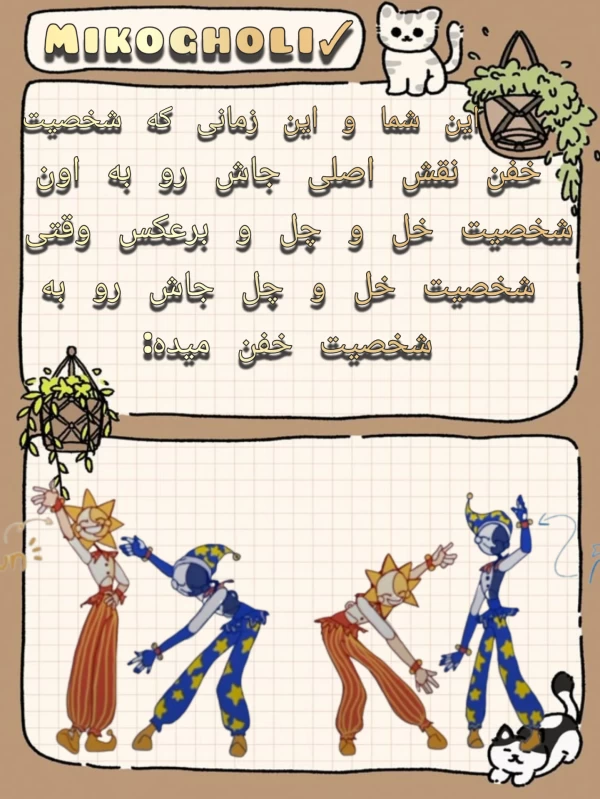 MIKOGHOLI✓
این شما و این زمانی که شخصیت
خفن نقش اصلی جاش رو به اون
شخصیت خل و چل و برعکس وقتی
شخصیت خل و چل جاش رو به
شخصیت خفن میده: